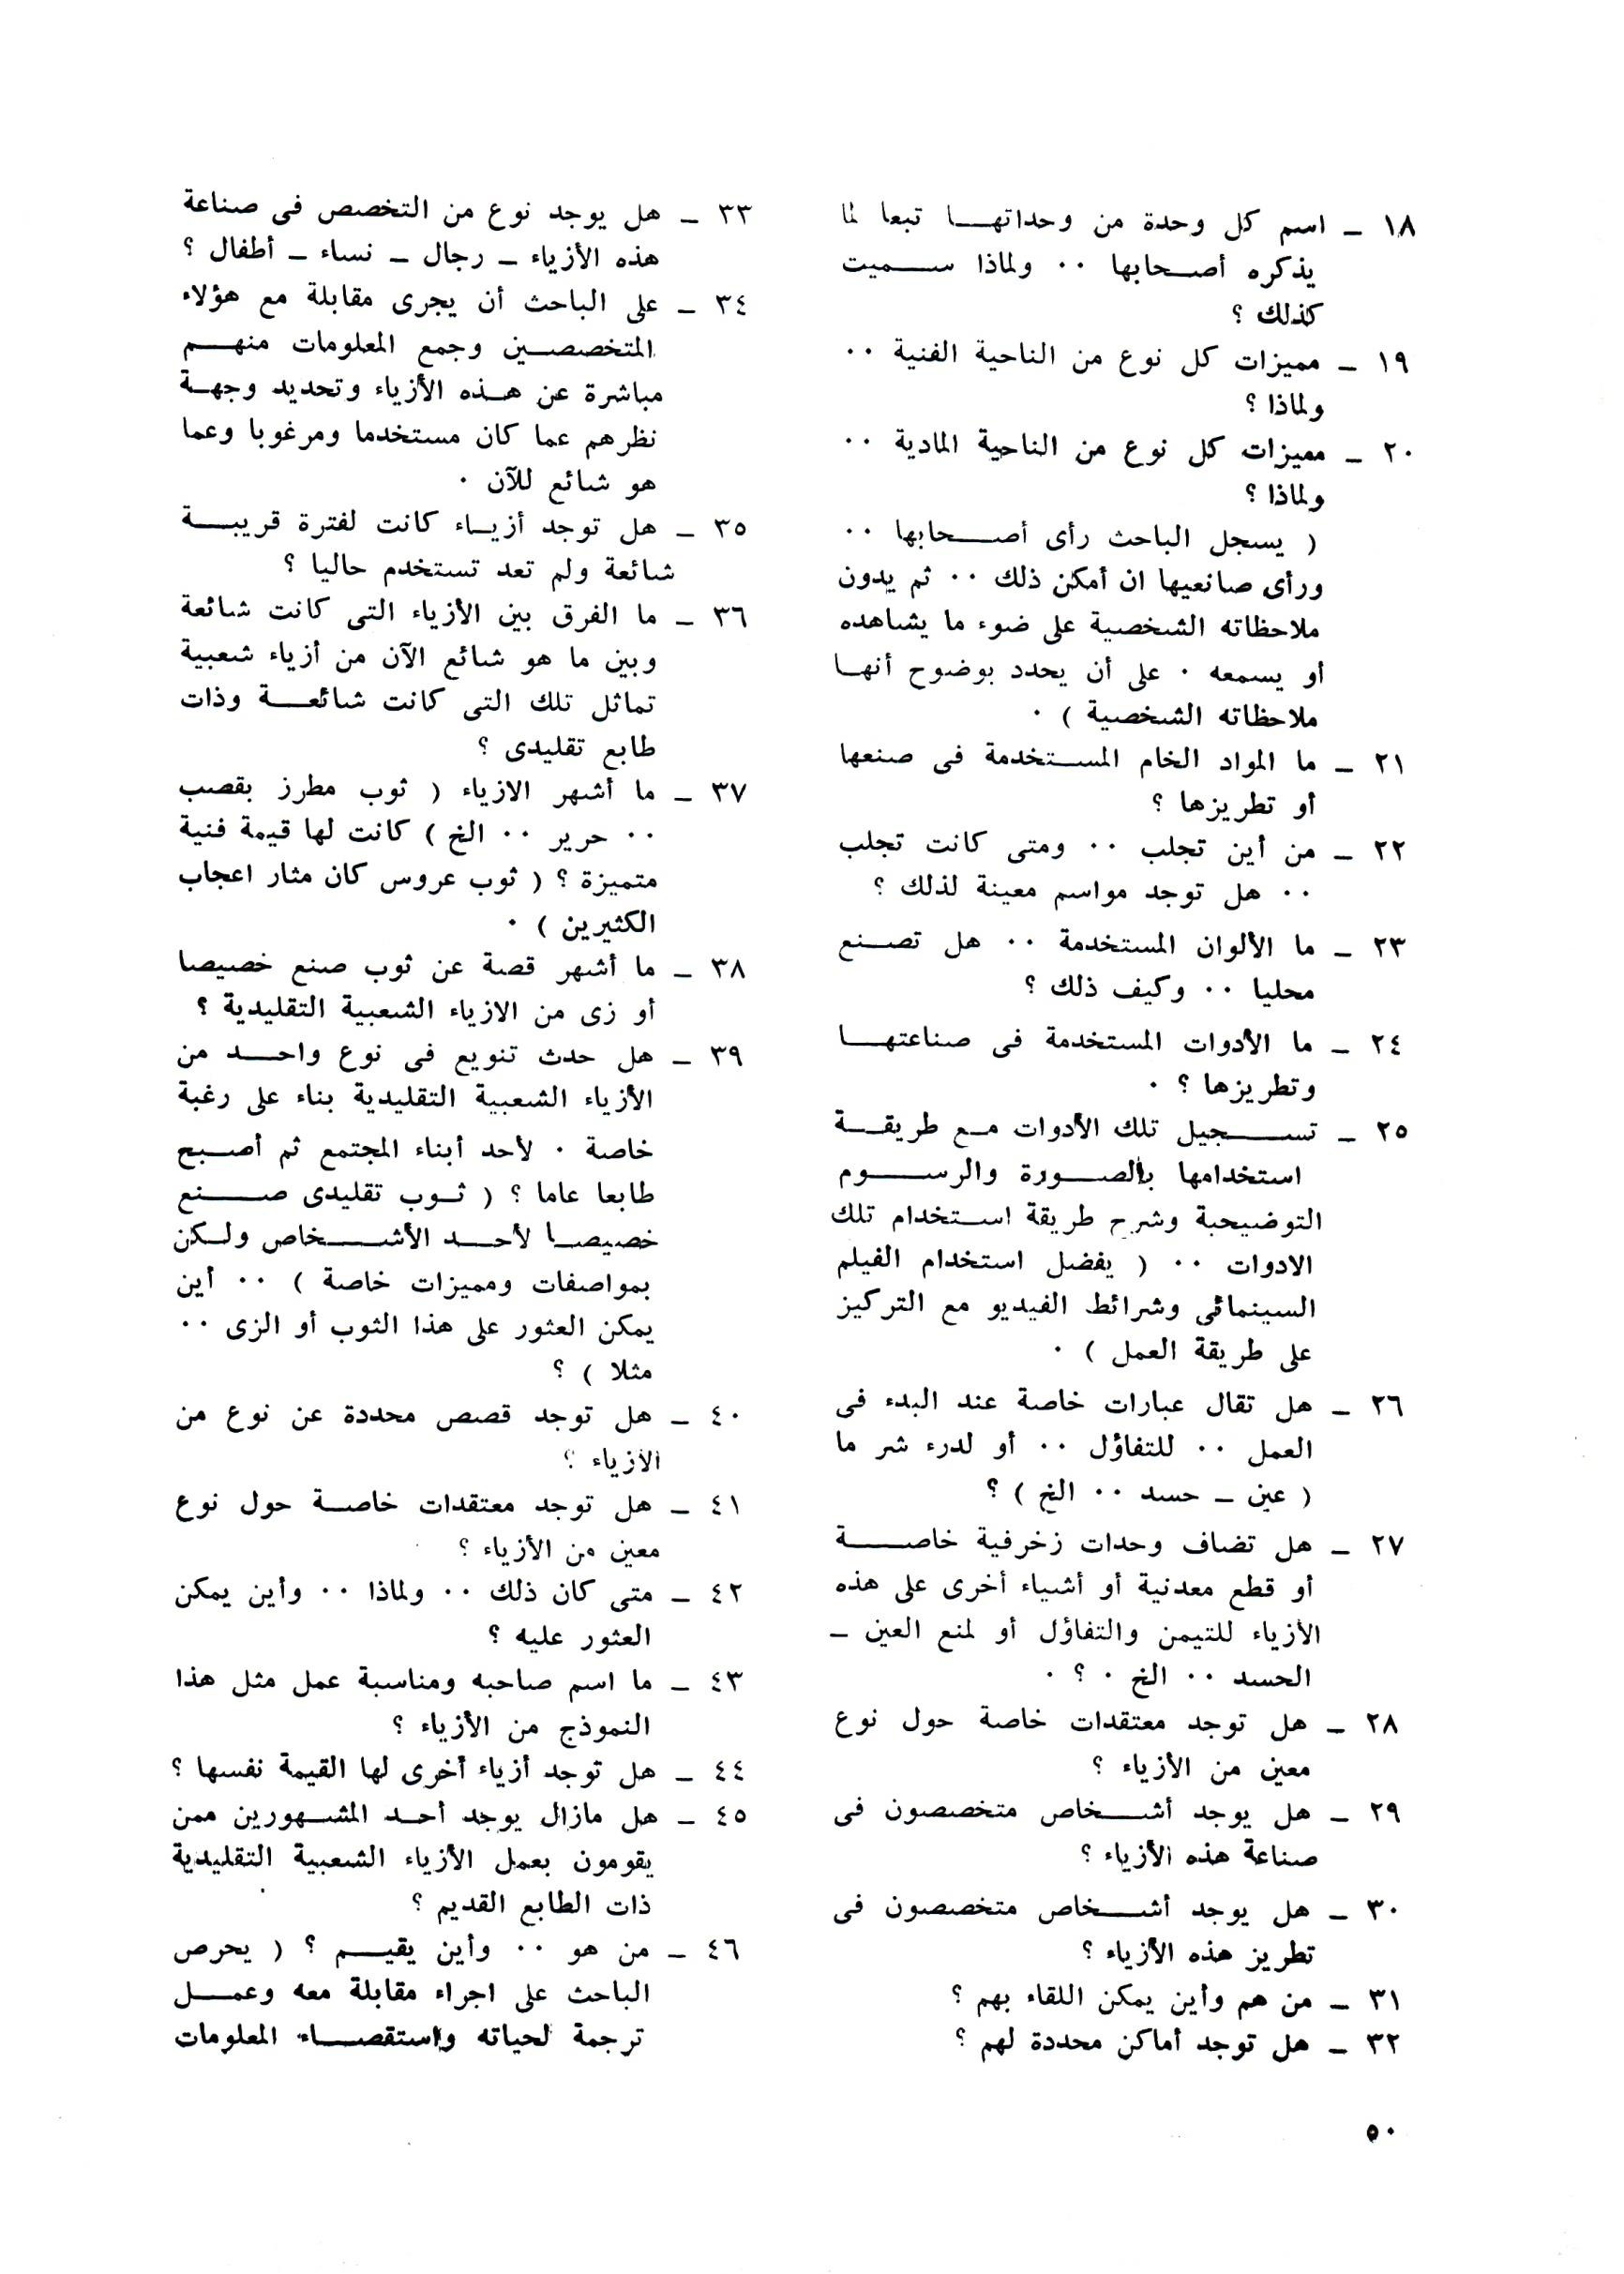 ١٨ ـ اسم كل وحدة من وحداتهـــا تبعا لما
يذكره أصـحابها ٠٠ ولماذا ســـميت
كذلك ؟
١٩ ـ مميزات كل نوع من الناحية الفنية ٠٠
ولماذا ؟
٢٠ ـ مميزات كل نوع من الناحية المادية ٠٠
ولماذا ؟
( يسجل الباحث رأى أصـــحابها ٠٠
ورأى صانعيها ان أمكن ذلك ٠٠ ثم يدون
ملاحظاته الشخصية على ضوء ما يشاهده
أو يسمعه ٠ على أن يحدد بوضوح أنهـا
ملاحظاته الشخصية ) ٠
٢١ ـ ما المواد الخام المســتخدمة فى صنعها
أو تطريزها ؟
٢٢ ـ من أين تجلب ٠٠ ومتى كانت تجلب
٠٠ هل توجد مواسم معينة لذلك ؟
٢٣ ـ ما الألوان المستخدمة ٠٠ هل تصـــنع
محليا ٠٠ وكيف ذلك ؟
٢٤ ـ ما الأدوات المستخدمة فى صناعتهـــا
وتطريزها ؟ ٠
٢٥ ـ تســـــجيل تلك الأدوات مـع طريقـــة
استخدامها بالصـــورة والرســـــوم
التوضيحية وشرح طريقة اسـتخدام تلك
الادوات ٠٠ ( يفضل استخدام الفيلم
السينمائى وشرائط الفيديو مع التركيز
على طريقة العمل ) ٠
٢٦ ـ هل تقال عبارات خاصة عند البدء فى
العمل ٠٠ للتفاؤل ٠٠ أو لدرء شر ما
( عين ـ حسد ٠٠ الخ ) ؟
٢٧ ـ هل تضاف وحدات زخرفية خاصـــــة
أو قطع معدنية أو أشياء أخرى على هذه
الأزياء للتيمن والتفاؤل أو لمنع العين ـ
الحسد ٠٠ الخ ٠ ؟ ٠
٢٨ ـ هل توجد معتقدات خاصة حول نوع
معين من الأزياء ؟
٢٩ ـ هل يوجد أشـــخاص متخصصون فى
صناعة هذه الأزياء ؟
٣٠ ـ هل يوجد أشـــخاص متخصصون فى
تطريز هذه الأزياء ؟
٣١ ـ من هم وأين يمكن اللقاء بهم ؟
٣٢ ـ هل توجد أماكن محددة لهم ؟
٣٣ ـ هل يوجد نوع من التخصص فى صناعة
هذه الأزياء ـ رجال ـ نساء ـ أطفال ؟
٣٤ ـ على الباحث أن يجرى مقابلة مع هؤلاء
المتخصصـــين وجمع المعلومات منهـــم
مباشرة عن هـــذه الأزياء وتحديد وجهـة
نظرهم عما كان مستخدما ومرغوبا وعما
هو شائع للآن ٠
٣٥ ـ هل توجد أزيــاء كانت لفترة قريبـــة
شائعة ولم تعد تستخدم حاليا ؟
٣٦ ـ ما الفرق بين الأزياء التى كانت شائعة
وبين ما هو شائع الآن من أزياء شعبية
تماثل تلك التى كانت شائعـــة وذات
طابع تقليدى ؟
٣٧ ـ ما أشهر الازياء ( ثوب مطرز بقصب
٠٠ حرير ٠٠ الخ ) كانت لها قيمة فنية
متميزة ؟ ( ثوب عروس كان مثار اعجاب
الكثيرين ) ٠
٣٨ ـ ما أشهر قصة عن ثوب صنع خصيصا
أو زى من الازياء الشعبية التقليدية ؟
٣٩ ـ هل حدث تنويع فى نوع واحـــد من
الأزياء الشعبية التقليدية بناء على رغبة
خاصة ٠ لأحد أبناء المجتمع ثم أصـبح
طابعا عاما ؟ ( ثــوب تقليدى صـــــنع
خصيصـا لأحـــد الأشـــــخاص ولـكن
بمواصفات ومميزات خاصة ) ٠٠ أين
يمكن العثور على هذا الثوب أو الزى ٠٠
مثلا ) ؟
٤٠ ـ هل توجد قصص محددة عن نوع من
الأزياء ؟
٤١ ـ هل توجد معتقدات خاصـة حول نوع
معين من الأزياء ؟
٤٢ ـ متى كان ذلك ٠٠ ولماذا ٠٠ وأين يمكن
العثور عليه ؟
٤٣ ـ ما اسم صاحبه ومناسبة عمل مثل هذا
النموذج من الأزياء ؟
٤٤ ـ هل توجد أزياء أخرى لها القيمة نفسها ؟
٤٥ ـ هل مازال يوجد أحـد المشـهورين ممن
يقومون بعمل الأزياء الشعبية التقليدية
ذات الطابع القديم ؟
٤٦ ـ من هو ٠٠ وأين يقيـــم ؟ ( يحرص
الباحث على اجراء مقابلة معه وعمـــل
ترجمة لحياته واستقصـــاء المعلومات
٥٠